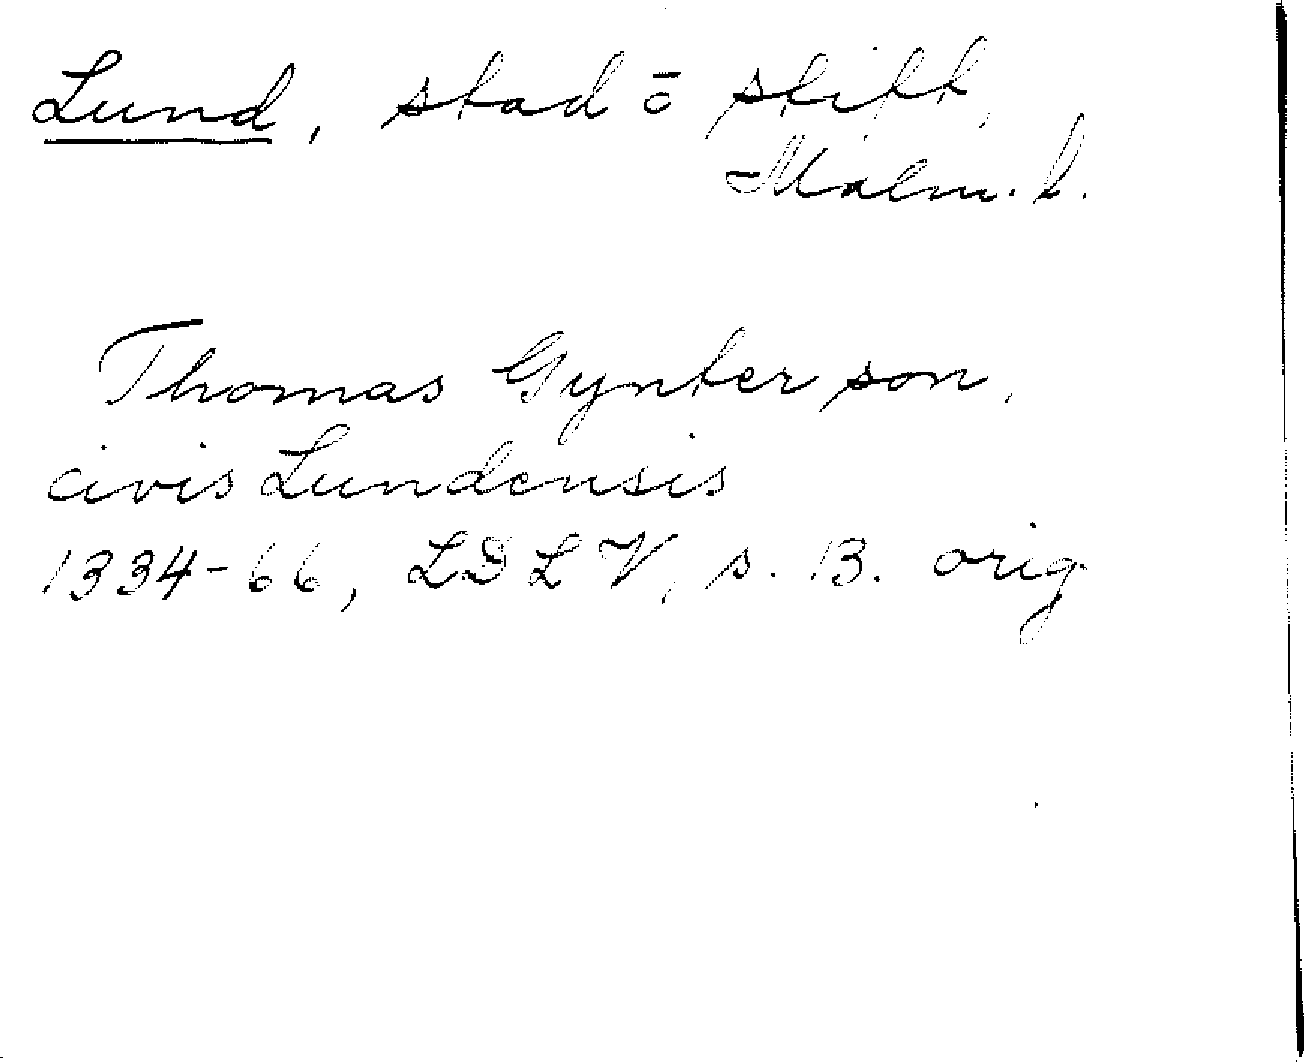 Lund, stad ō stift,
Malm. l.
Thomas Gynterson,
civis Lundensis
1334-66, LDLV, s. 13. orig.